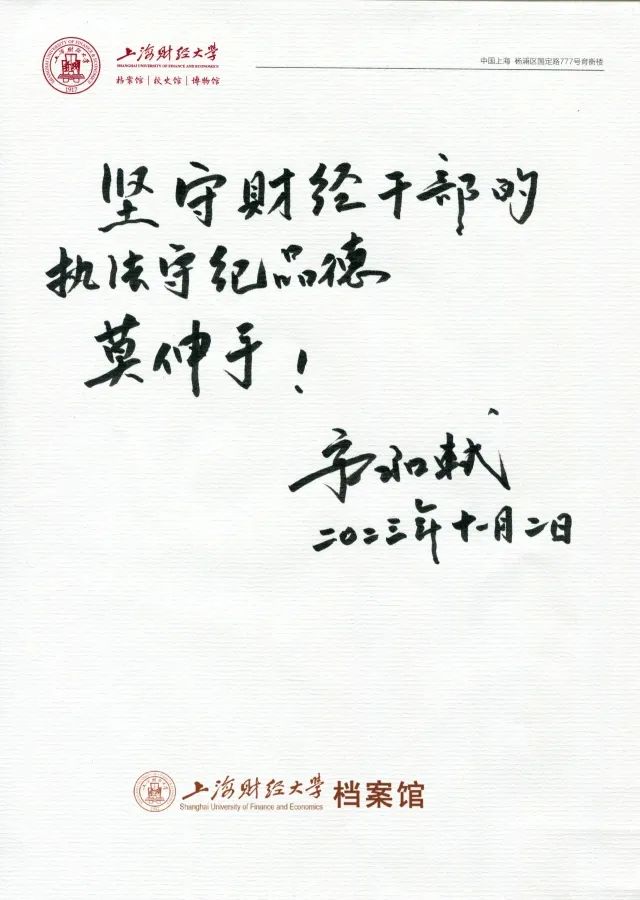 上海财经大学
SHANGHAI UNIVERSITY OF FINANCE AND ECONOMICS
档案馆 | 校史馆 | 博物馆
中国上海 杨浦区国定路777号育衡楼
坚守财经干部的
执法守纪品德
莫伸手!
二〇二三年十一月二日
上海财经大学 档案馆
Shanghai University of Finance and Economics